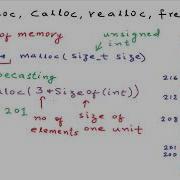 oc, Calloc, realloc, fre
of memory
unsigned
int
malloc(size_t size)
pecasting
216
212
lloc(3*Sizeof(int))
208
201
no of
elements
size of
one unit
201
200